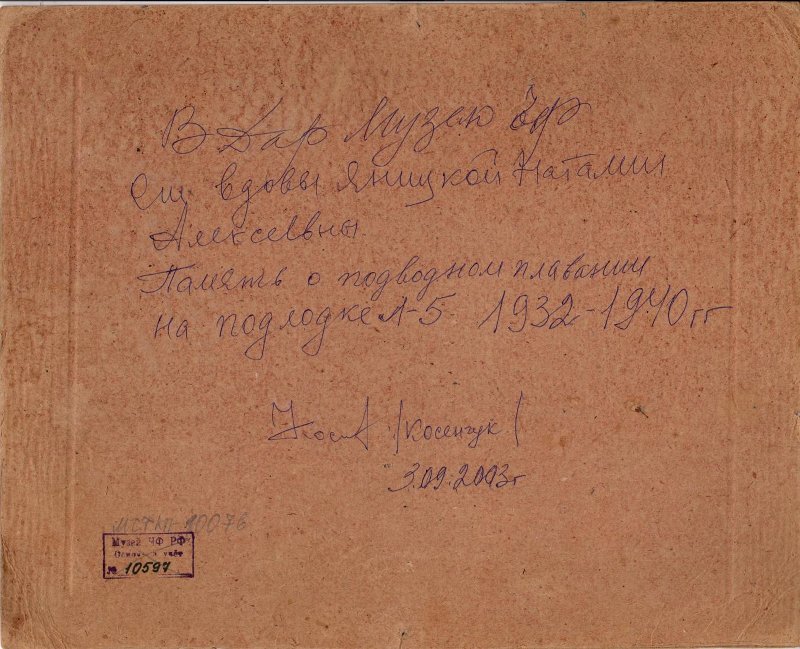 В Дар Музею ЧФ
От вдовы Яницкой Наталии
Алексеевны.
Память о подводном плавании
на подлодке Л-5 1932-1940 гг
/Косенчук/
3.09.2003г
10076
Музей ЧФ РФ
Основной учёт
№ 10597